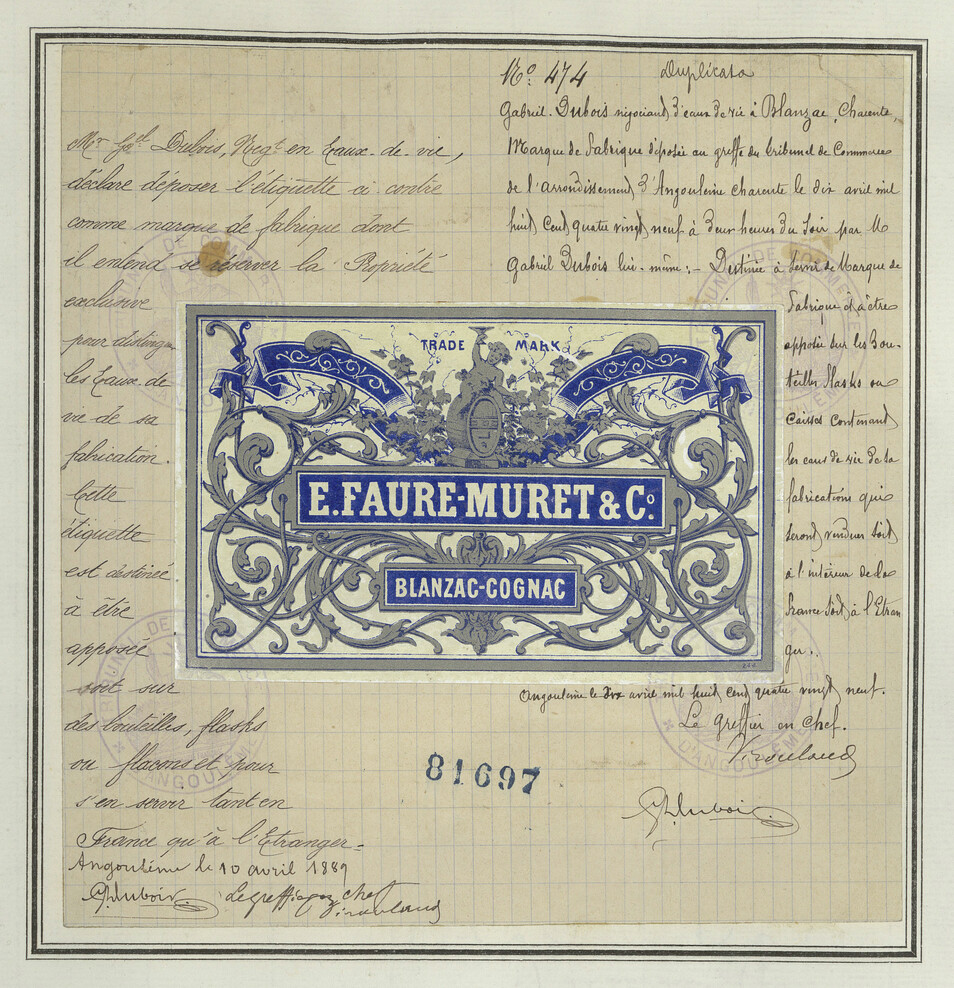 No: 474 Duplicata
Gabriel Dubois négociant d'eaux de vie à Blanzac, Charente
Marque de Fabrique déposée au greffe du tribunal de Commerce
de l'arrondissement d'Angoulême charente le dix avril mil
huit Cent quatre vingt neuf à deux heures du Soir par M
Gabriel Dubois lui-même ; — Destinée à servir de Marque de
Fabrique et à être
apposée sur les Bou-
teilles flasks ou
Caisses contenant
les eaux de vie de sa
fabrication qui
seront vendues soit
à l'intérieur de la
France soit à l'Etran
ger.
Angoulême le dix avril mil huit cent quatre vingt neuf.
Le Greffier en chef.
GDubois
Mr Gel Dubois, Negt en Eaux-de-vie,
déclare déposer l'étiquette ci contre
comme marque de fabrique dont
il entend se réserver la Propriété
exclusive
pour distinguer
les Eaux de
vie de sa
fabrication.
Cette
étiquette
est destinée
à être
apposée
soit sur
des bouteilles, flasks
ou flacons et pour
s'en servir tant en
France qu'à l'Etranger=
Angoulême le 10 avril 1889
GDubois Le greffier en chef
TRADE MARK
E. FAURE-MURET & Co.
BLANZAC-COGNAC
81697
TRIBUNAL DE COMMERCE
D'ANGOULÊME